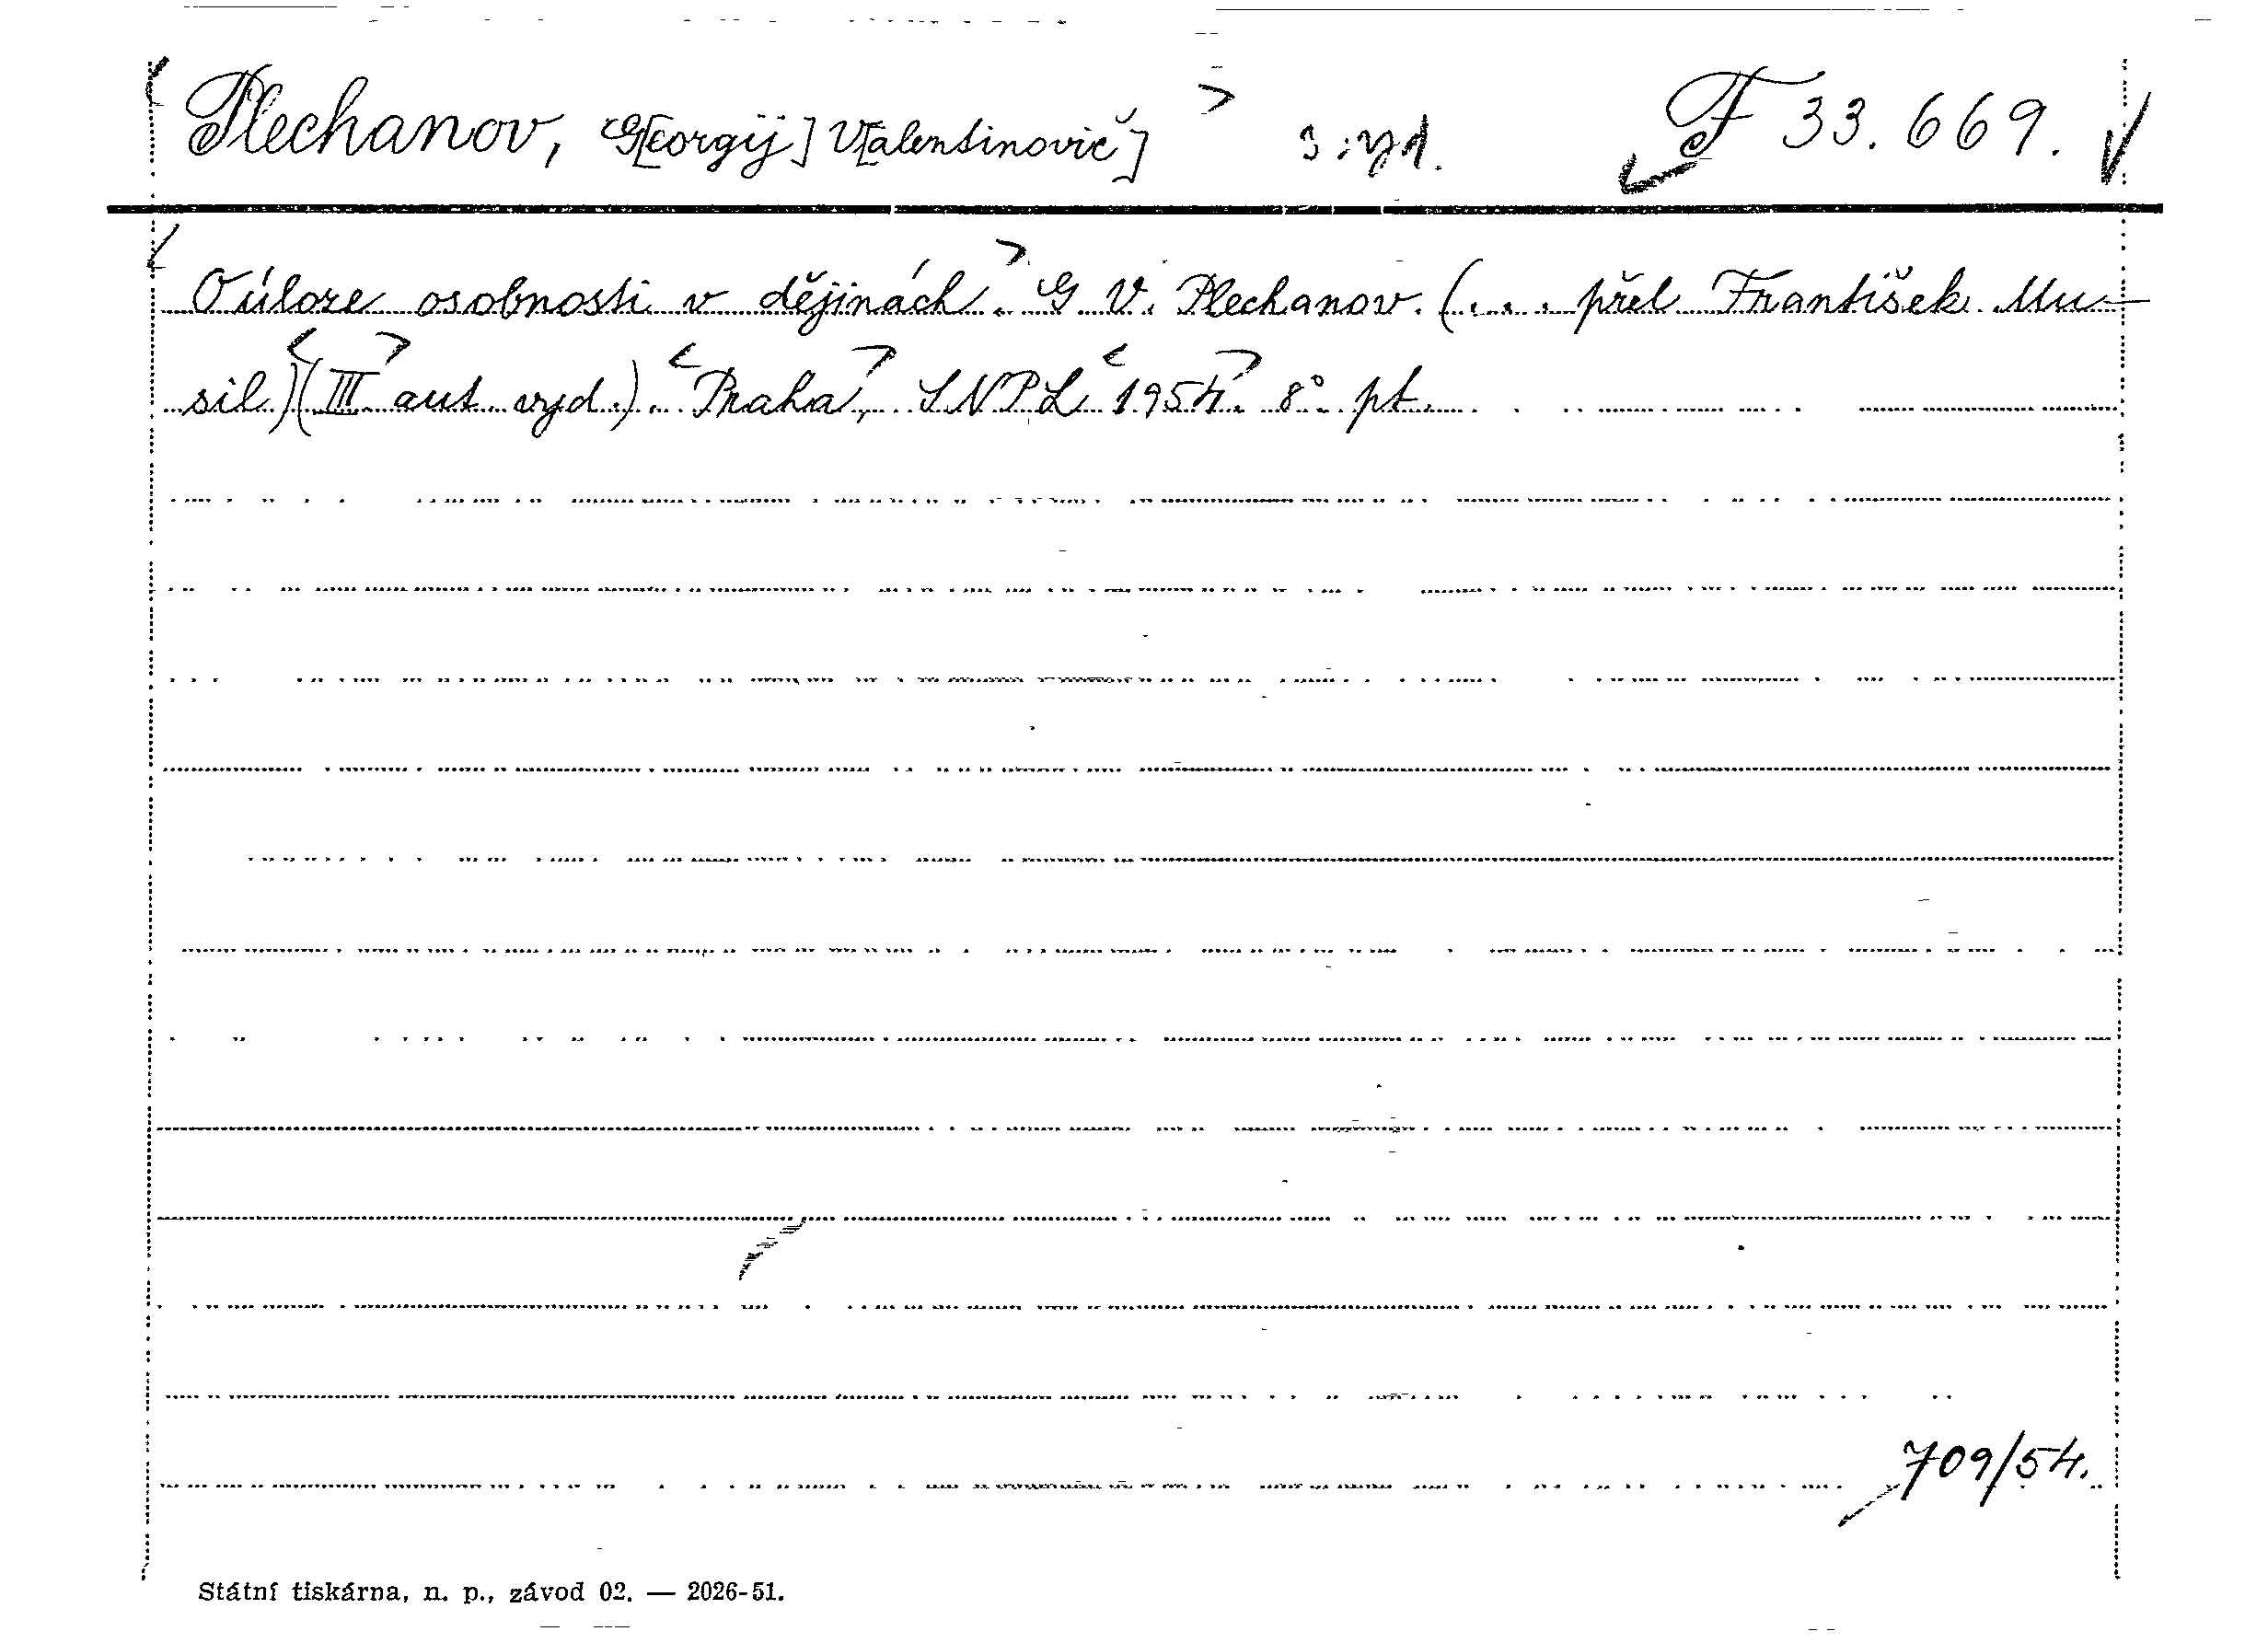 Plechanov, G[eorgij] V[alentinovič] 3. vyd. F 33.669.
O úloze osobnosti v dějinách. G. V. Plechanov. (... přel. František Mu-
sil.) (III. aut. vyd.). Praha, SNPL 1954. 8°. pt.
709/54.
Státní tiskárna, n. p., závod 02. — 2026-51.